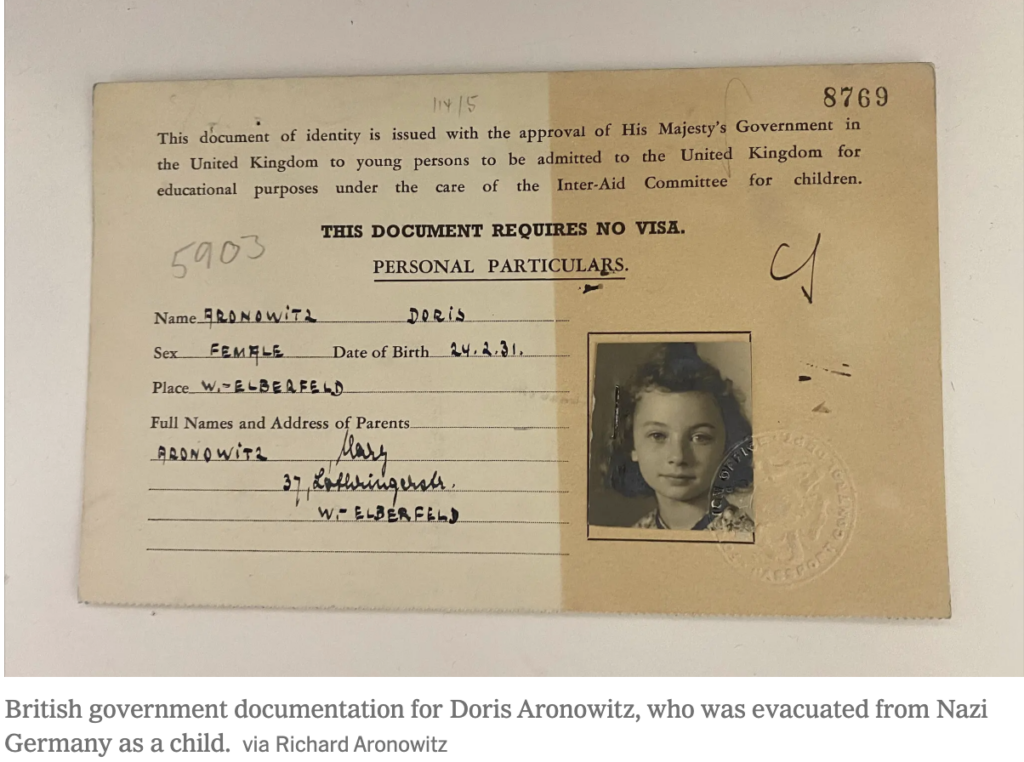 114/5
8769
This document of identity is issued with the approval of His Majesty's Government in
the United Kingdom to young persons to be admitted to the United Kingdom for
educational purposes under the care of the Inter-Aid Committee for children.
THIS DOCUMENT REQUIRES NO VISA.
5903
PERSONAL PARTICULARS.
Name ARONOWITZ DORIS
Sex FEMALE Date of Birth 24.2.31.
Place W.-ELBERFELD
Full Names and Address of Parents
ARONOWITZ Mary
37, Lothringerstr.
W.- ELBERFELD
PASSPORT CONTROL
British government documentation for Doris Aronowitz, who was evacuated from Nazi
Germany as a child. via Richard Aronowitz